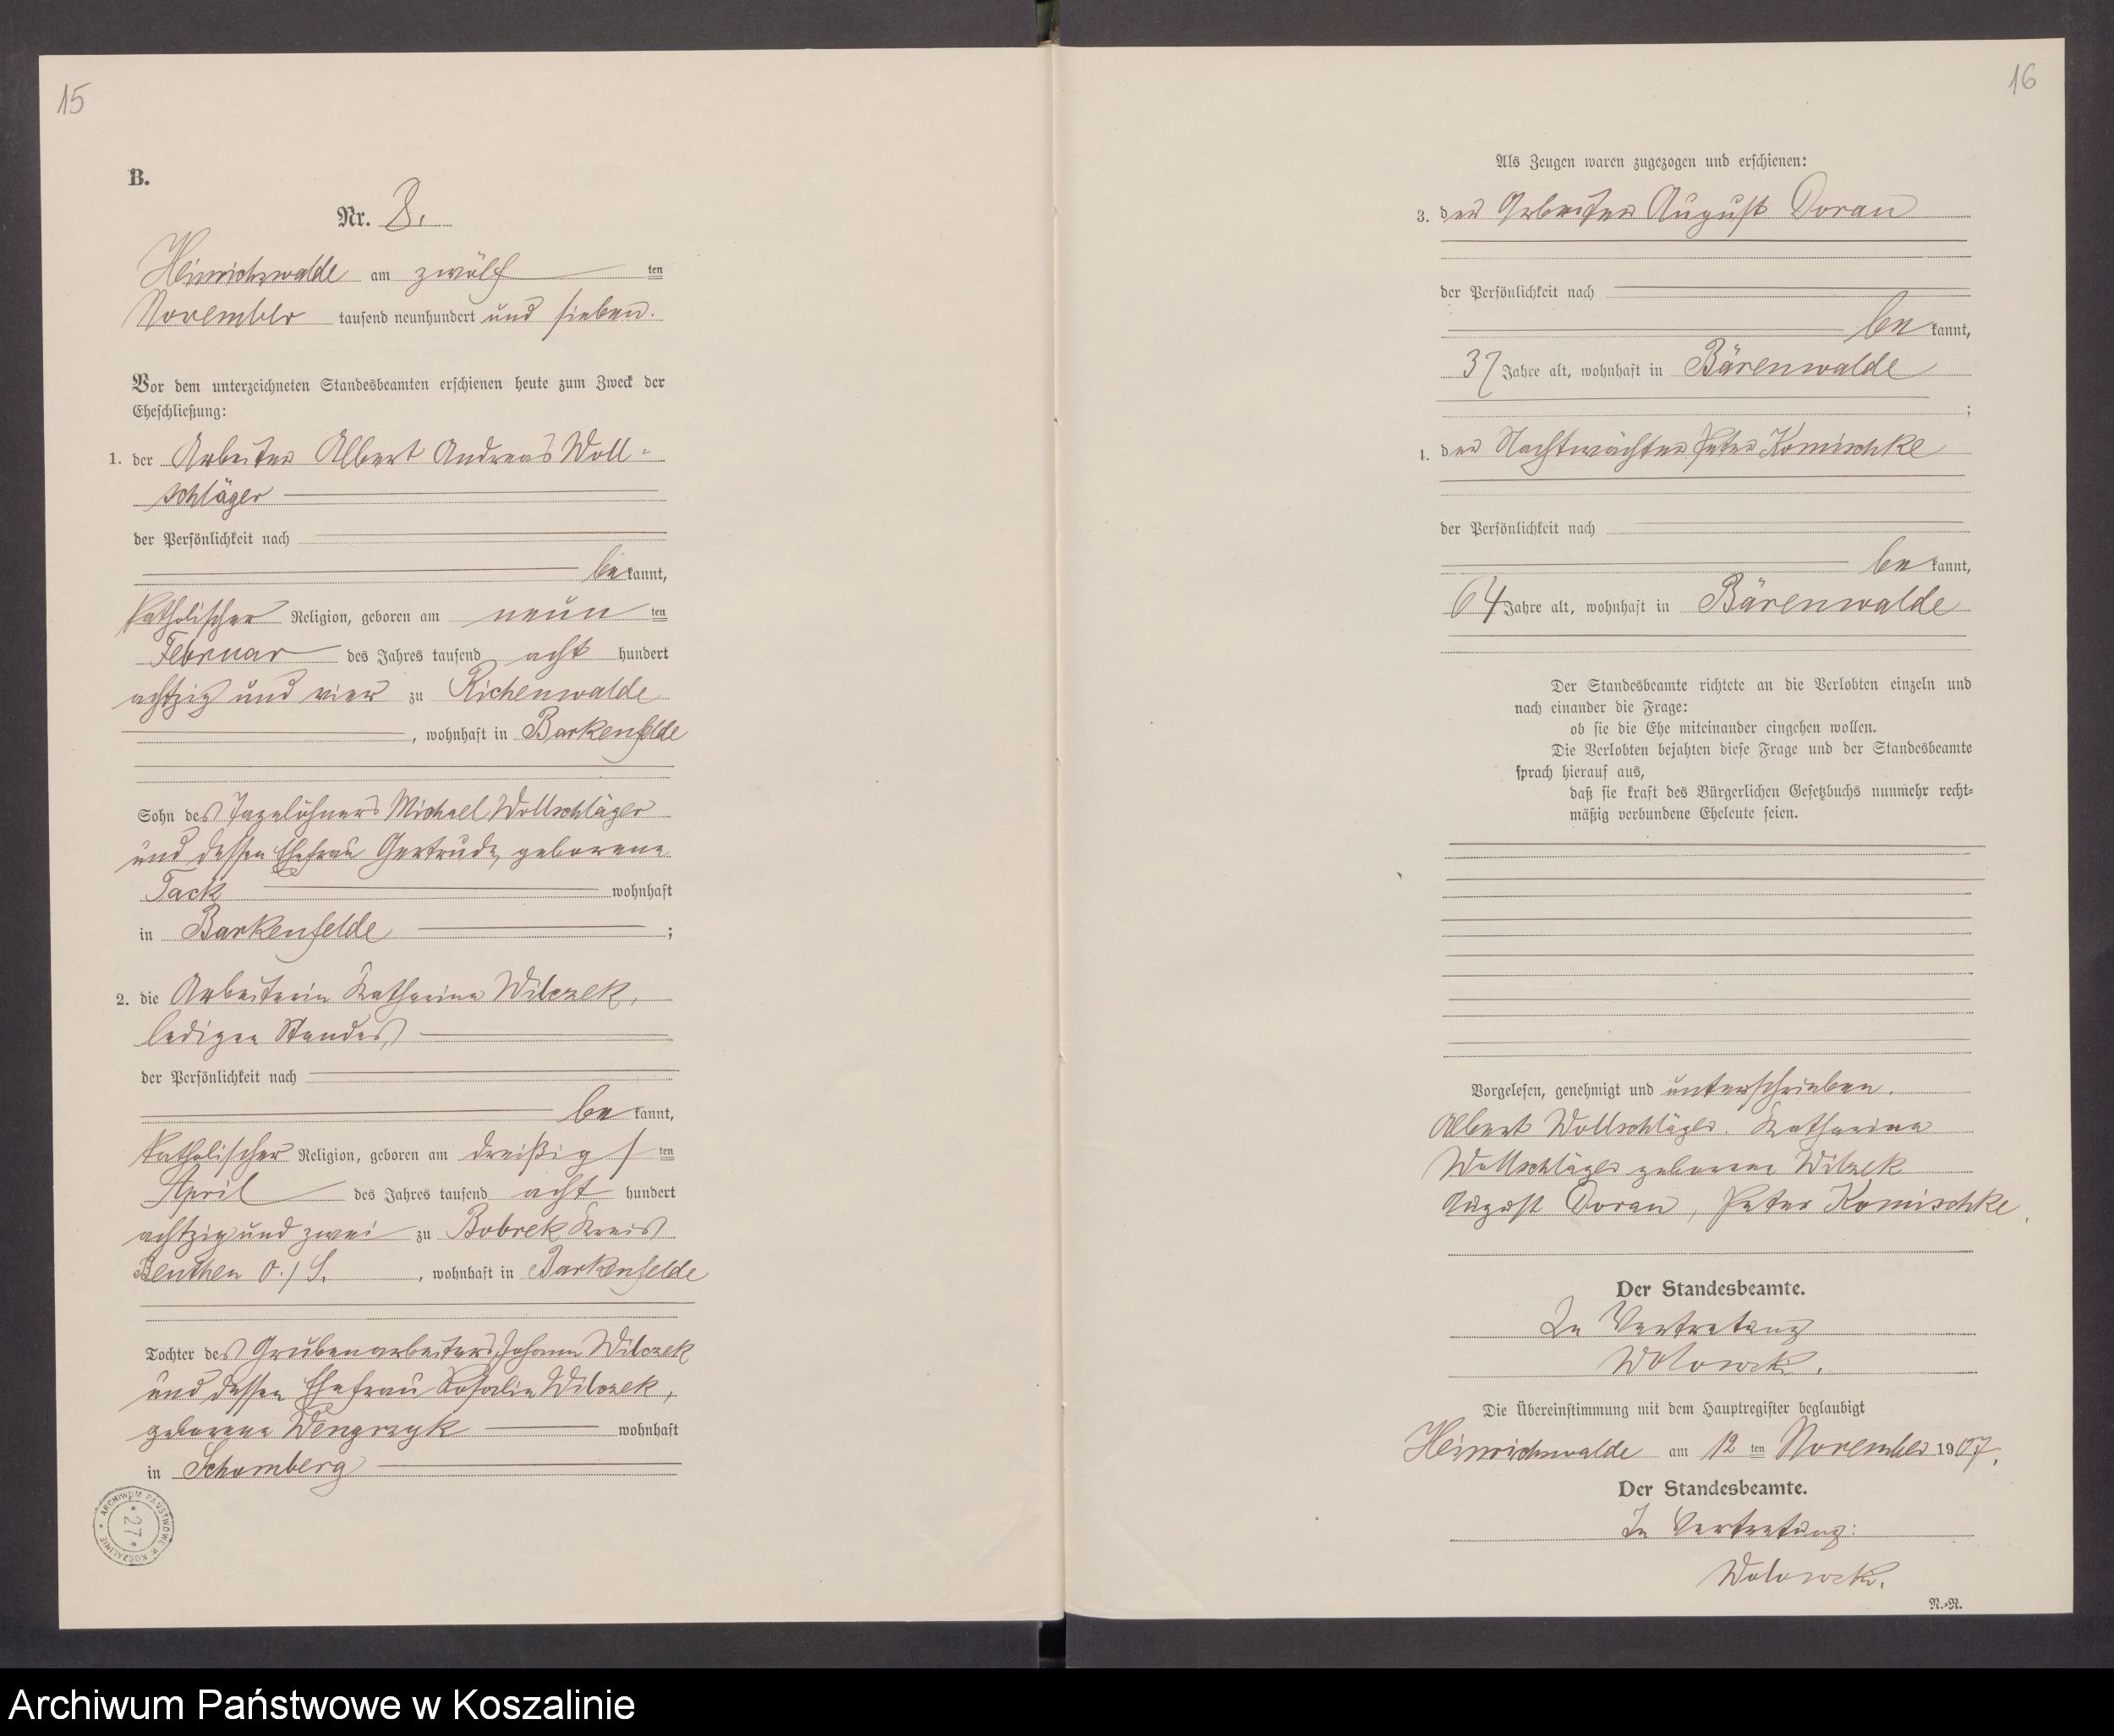 15
B.
Nr. 8.
Heinrichswalde am zwölf ten
November tausend neunhundert und sieben.
Vor dem unterzeichneten Standesbeamten erschienen heute zum Zweck der
Eheschließung:
1. der Arbeiter Albert Andreas Woll-
schläger
der Persönlichkeit nach
be kannt,
katholischer Religion, geboren am neun ten
Februar des Jahres tausend acht hundert
achtzig und vier zu Richenwalde
, wohnhaft in Barkenfelde
Sohn des Tagelöhners Michael Wollschläger
und dessen Ehefrau Gertrude, geborene
Tack wohnhaft
in Barkenfelde ;
2. die Arbeiterin Katharina Wilczek,
ledigen Standes,
der Persönlichkeit nach
be kannt,
katholischer Religion, geboren am dreißigs ten
April des Jahres tausend acht hundert
achtzig und zwei zu Bobrek Kreis
Beuthen O./S. , wohnhaft in Barkenfelde
Tochter des Grubenarbeiters Johann Wilczek
und dessen Ehefrau Rosalie Wilczek,
geborene Wengrzyk wohnhaft
in Schomberg
ARCHIWUM PAŃSTWOWE W KOSZALINIE
* 27 *
16
Als Zeugen waren zugezogen und erschienen:
3. der Arbeiter August Doran
der Persönlichkeit nach
be kannt,
37 Jahre alt, wohnhaft in Bärenwalde
;
4. der Nachtwächter Peter Komischke
der Persönlichkeit nach
be kannt,
64 Jahre alt, wohnhaft in Bärenwalde
Der Standesbeamte richtete an die Verlobten einzeln und
nach einander die Frage:
ob sie die Ehe miteinander eingehen wollen.
Die Verlobten bejahten diese Frage und der Standesbeamte
sprach hierauf aus,
daß sie kraft des Bürgerlichen Gesetzbuchs nunmehr recht-
mäßig verbundene Eheleute seien.
Vorgelesen, genehmigt und unterschrieben.
Albert Wollschläger. Katharina
Wollschläger geborene Wilzek
August Doran, Peter Komischke.
Der Standesbeamte.
In Vertretung
Die Übereinstimmung mit dem Hauptregister beglaubigt
Heinrichswalde am 12 ten November 1907.
Der Standesbeamte.
In Vertretung:
N.-N.
Archiwum Państwowe w Koszalinie